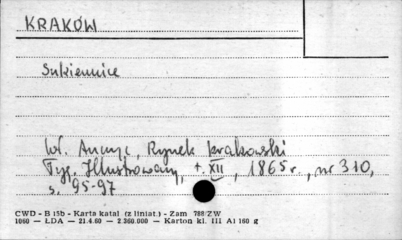 KRAKÓW
Sukiennice
Wł. Anczyc, Rynek krakowski
Tyg. Illustrowany, t. XII, 1865 r., nr 310,
s. 95-97
CWD - B 15b - Karta katal (z liniat.) - Zam 788/ZW
1060 — ŁDA — 21.4.60 — 2 360.000 — Karton kl. III A1 160 g